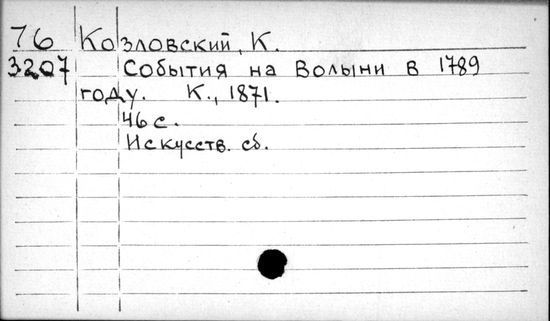 76 Козловский, К.
3207 События на Волыни в 1789
году. К., 1871.
46 с.
Искусств. сб.